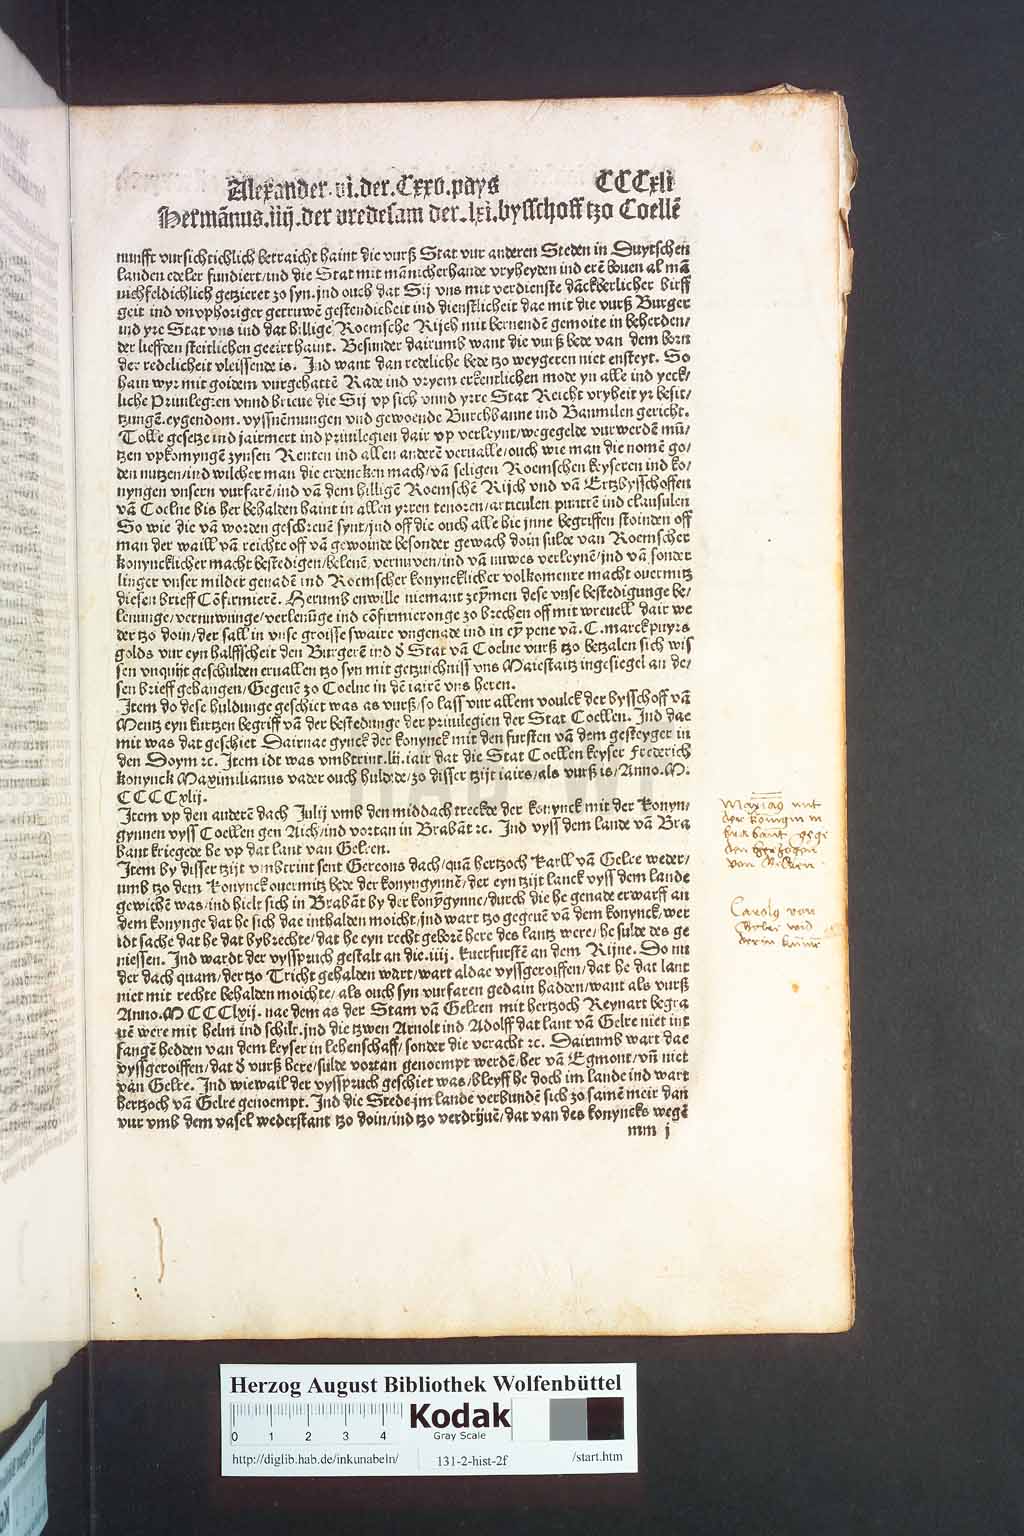 Alexander.vi.der.Ccxv.pays CCCxli
Hermānus.iiij.der vredesam der.lxi.bysschoff tzo Coellē
nunfft vursichtichlich betraicht haint die vurß Stat vur anderen Steden in Duytschen
landen edeler fundiert/ind die Stat mit mānicherhande vryheyden ind erē bouen al mā
nichfeldichlich getzieret zo syn.jnd ouch dat Sij vns mit verdienste dāckberlicher birff
geit ind vnvphoriger getruwē gestendicheit ind dienstlicheit dae mit die vurß Burger
ind yre Stat vns ind dat hillige Roemsche Rijch mit bernendē gemoite in beherden/
der lieffden steitlichen geeirt haint. Besunder dairumb want die vurß bede van dem born
der redelicheit vleissende is. Jnd want dan redeliche bede tzo weygeren niet ensteyt. So
hain wyr mit goidem vurgehattē Rade ind vryem erkentlichen mode yn alle ind yeck/
liche Priuilegien vnnd brieue die Sij vp sich vnnd yrre Stat Reicht vryheit yr besitt/
tzungē.eygendom.vyssnēmungen vnd gewoende Burchbanne ind Banmilen gericht.
Tolle gesetze ind jairmert ind priuilegien dair vp verleynt/wegegelde vurwerdē mū/
tzen vpkomyngē zynsen Renten ind allen anderē verualle/ouch wie man die nomē go/
den nutzen/ind wilcher man die erdencken mach/vā seligen Roemschen keyseren ind ko/
nyngen vnsern vurfarē/ind vā dem hilligē Roemschē Rijch vnd vā Ertzbysschoffen
vā Coelne bis her behalden haint in allen yrren tenoren/articulen puntten ind clausulen
So wie die vā worden geschreuē synt/jnd off die ouch alle hie jnne begriffen stoinden off
man der waill vā reichte off vā gewoinde besonder gewach doin sulde van Roemscher
konyncklicher macht bestedigen/belenē vernuwen/ind vā nuwes verleynē/jnd vā sonder
linger vnser milder genadē ind Roemscher konyncklicher volkomenre macht ouermitz
diesen brieff Cōfirmierē. Herumb enwille niemant zeymen dese vnse bestedigunge be/
lenunge/vernuwunge/verlenūge ind cōfirmieronge zo brechen off mit wreuell dair we
der tzo doin/der sall in vnse groisse swaire vngenade ind in eȳ pene vā. C. marck puyrs
golds vur eyn halffscheit den Burgerē ind d Stat vā Coelne vurß tzo betzalen sich wis
sen vnquijt geschulden eruallen tzo syn mit getzuichniss vns Maiestaitz ingesiegel an de/
sen brieff gehangen/Gegeuē zo Coelne in dē iairē vns heren.
Jtem do dese huldunge geschiet was as vurß/so lass vur allem voulck der bysschoff vā
Mentz eyn kurtzen begriff vā der bestedunge der priuilegien der Stat Coellen. Jnd dae
mit was dat geschiet Dairnae gynck der konynck mit den fursten vā dem gesteyger in
den Doym ꝛc. Jtem idt was vmbtrint.lij.iair dat die Stat Coellen keyser Frederich
konynck Maximilianus vader ouch huldede/zo disser tzijt iairs/als vurß is/Anno.M.
CCCCxlij.
Jtem vp den anderē dach Julij vmb den middach treckde der konynck mit der konyn/
gynnen vyss Coellen gen Aich/ind vortan in Brabāt ꝛc. Jnd vyss dem lande vā Bra
bant kriegede he vp dat lant van Gelren.
Jtem by disser tzijt vmbtrint sent Gereons dach/quā hertzoch Karll vā Gelre weder/
umb tzo dem konynck ouermitz bede der konyngynnē/der eyn tzijt lanck vyss dem lande
gewichē was/ind hielt sich in Brabāt by der konȳgynne/durch die he genade erwarff an
dem konynge dat he sich dae inthalden moicht/jnd wart tzo gegeuē vā dem konynck/wer
idt sache dat he dat bybrechte/dat he eyn recht geborē here des lantz were/he sulde des ge
niessen. Jnd wardt der vysspruch gestalt an die.iiij. kuerfurstē an dem Rijne. Do nu
der dach quam/der tzo Tricht gehalden wart/wart aldae vyssgeroiffen/dat he dat lant
niet mit rechte behalden moichte/als ouch syn vurfaren gedain hadden/want als vurß
Anno.MCCCClxxij.nae dem as der Stam vā Gelren mit hertzoch Reynart begra
uē were mit helm ind schilt.jnd die tzwen Arnolt ind Adolff dat lant vā Gelre niet int
fangē hedden van dem keyser in lehenschaff/sonder die veracht ꝛc. Dairumb wart dae
vyssgeroiffen/dat d vurß here/sulde vortan genoempt werdē/her vā Egmont/vñ niet
vān Gelre. Jnd wiewail der vysspruch geschiet was/bleyff he doch im lande ind wart
hertzoch vā Gelre genoempt. Jnd die Stede jm lande verbundē sich zo samē meir dan
vur vmb dem vasel wederstant tzo doin/ind tzo verdrijuē/dat van des konyncks wegē
mm j
der konigin in
brabant
den hertzogen
von
Carolg von
Herzog August Bibliothek Wolfenbüttel
0 1 2 3 4
Kodak
Gray Scale
http://diglib.hab.de/inkunabeln/ 131-2-hist-2f /start.htm